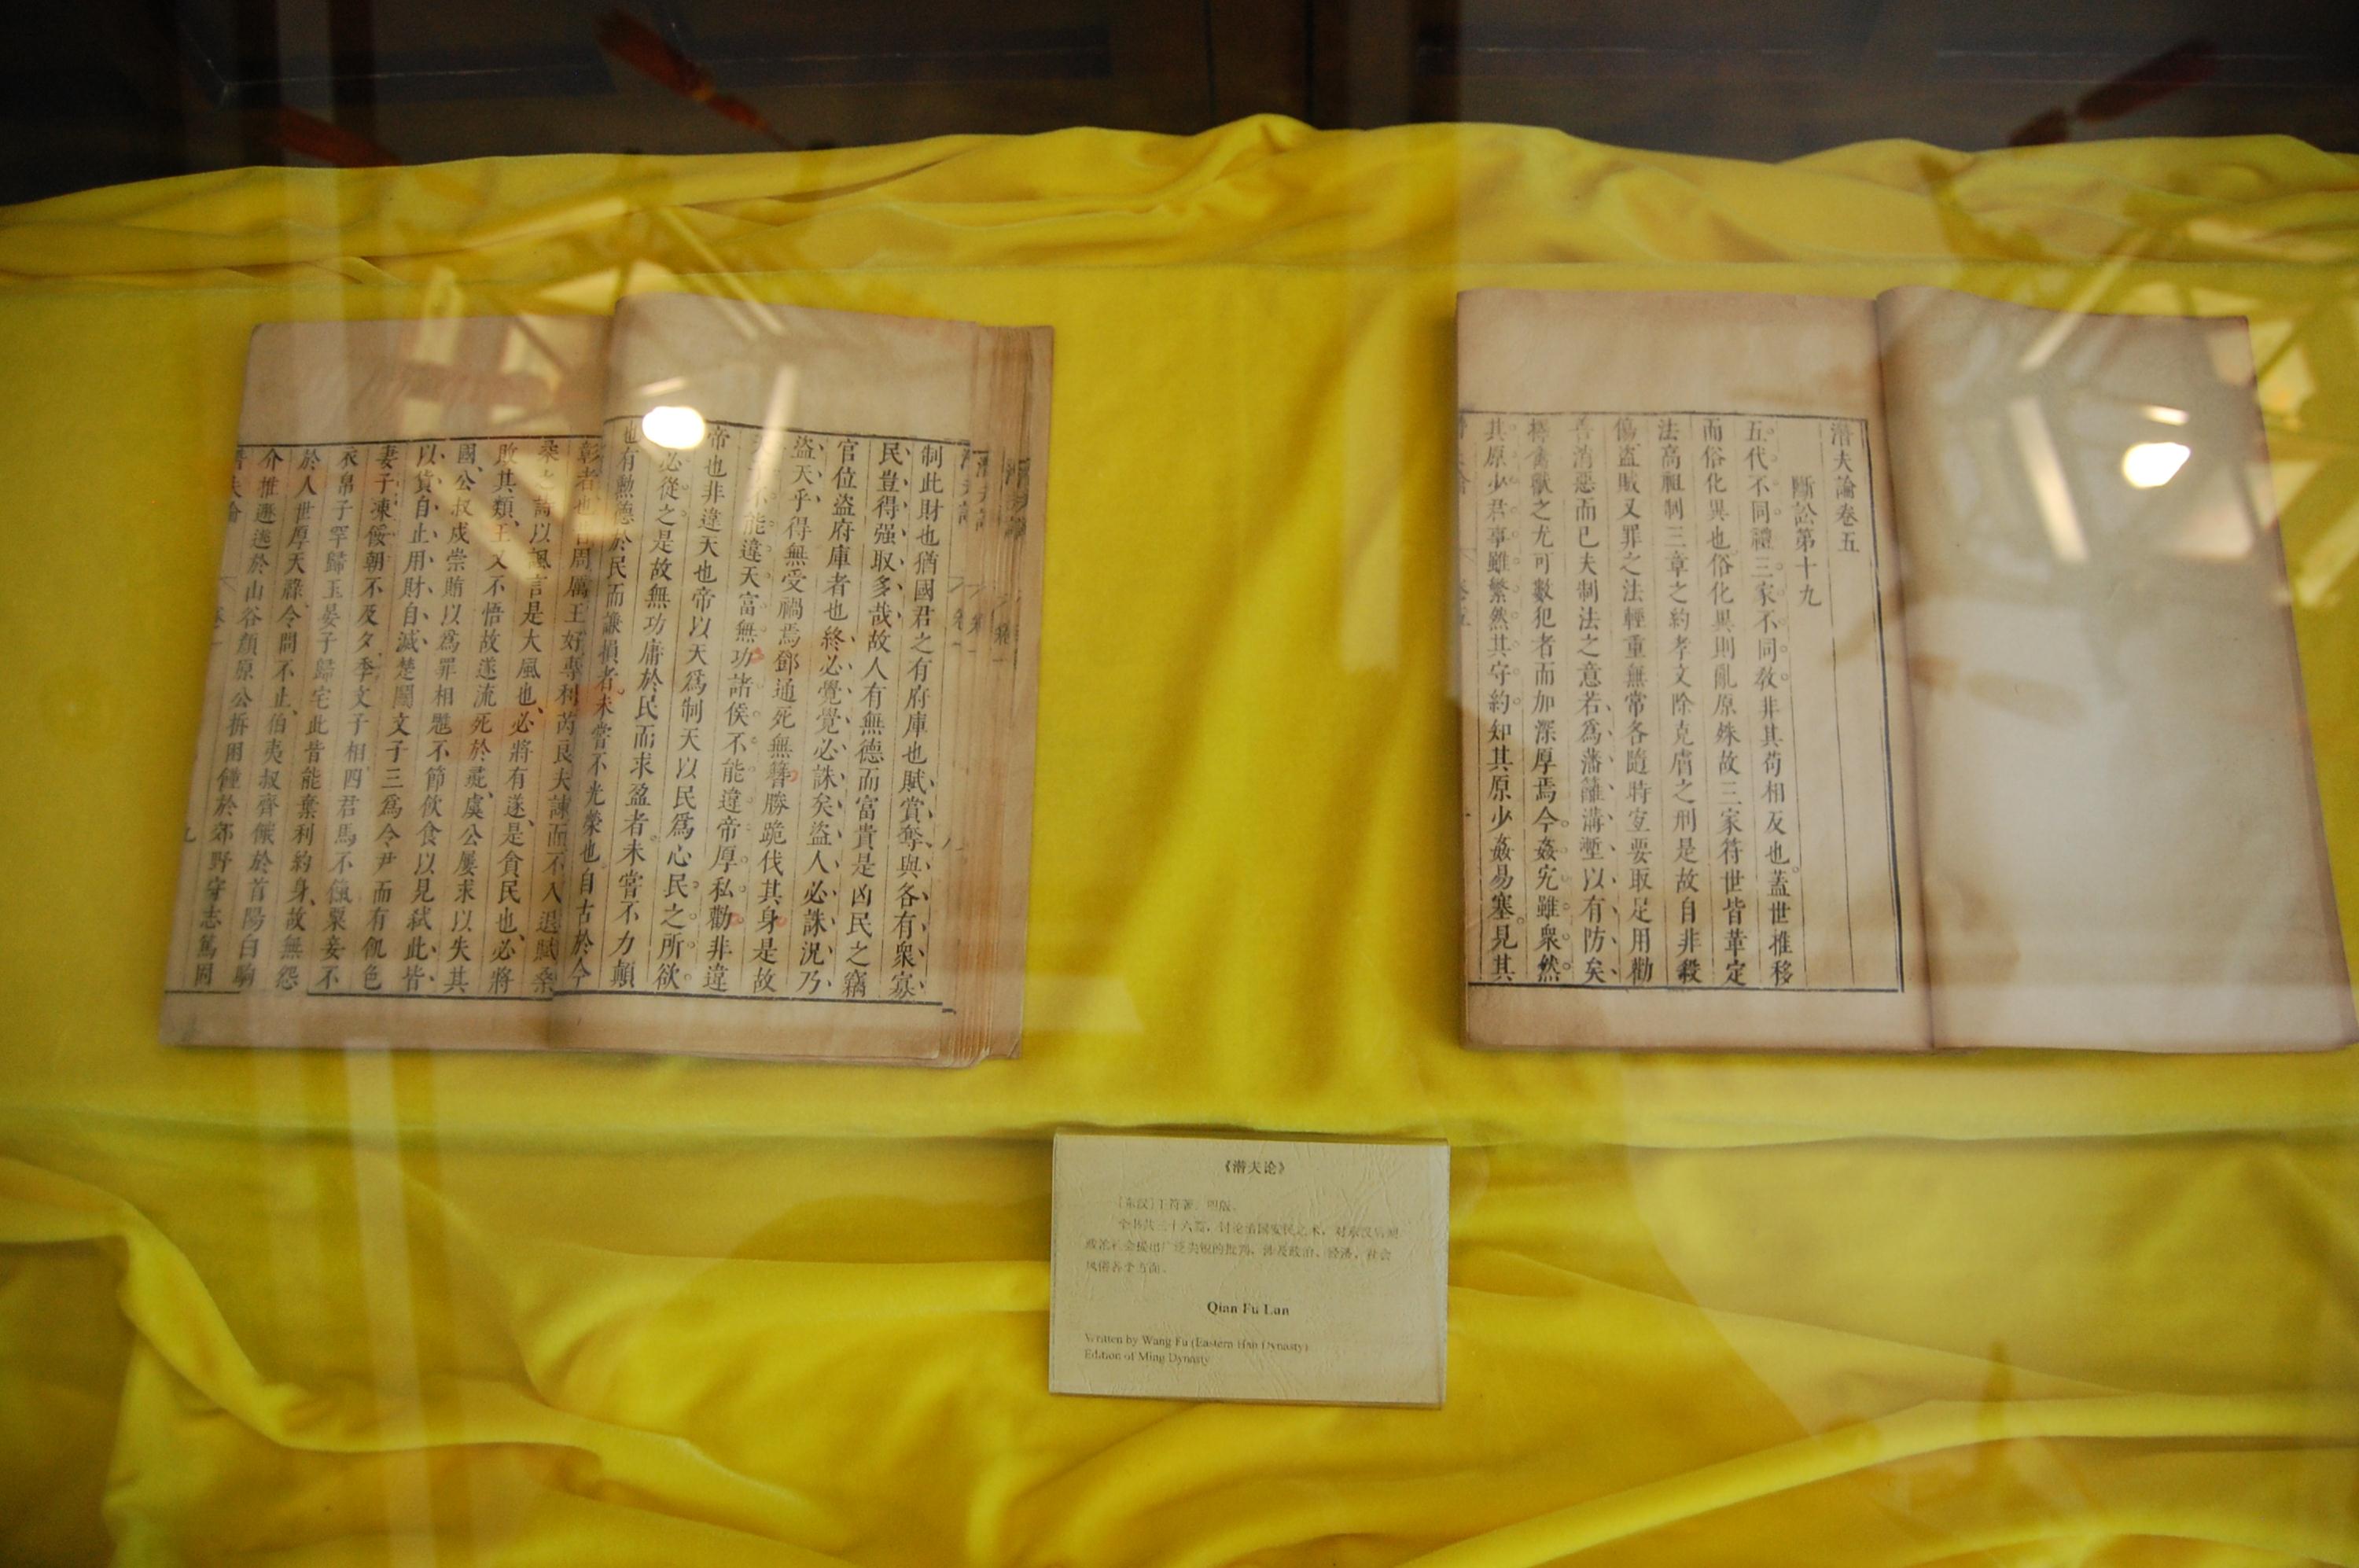 制此財也猶國君之有府庫也賦賞奪與各有衆寡
民豈得强取多哉故人有無德而富貴是凶民之竊
官位盜府庫者也終必覺覺必誅矣盜人必誅況乃
盜天乎得無受禍焉鄧通死無簪勝跪伐其身是故
不能違天富無功諸侯不能違帝厚私勸非違
帝也非違天也帝以天爲制天以民爲心民之所欲
必從之是故無功庸於民而求盈者未嘗不力顛
也有勲德於民而謙損者未嘗不光榮也自古於今
彰者也昔周厲王好專利芮良夫諫而不入退賦桑
柔之詩以諷言是大風也必將有遂是貪民也必將
敗其類王又不悟故遂流死於彘虞公屢求以失其
國公叔戍崇賄以爲罪相魋不節飲食以見弑此皆
以貨自止用財自滅楚鬭文子三爲令尹而有飢色
妻子凍餒朝不及夕季文子相四君馬不餼粟妾不
衣帛子罕歸玉晏子歸宅此皆能棄利約身故無怨
於人世厚天祿令問不止伯夷叔齊餓於首陽白駒
介推遯逃於山谷顏原公析困饉於郊野守志篤固
潛夫論卷五
斷訟第十九
五代不同禮三家不同教非其苟相反也蓋世推移
而俗化異也俗化異則亂原殊故三家符世皆革定
法高祖制三章之約孝文除克膚之刑是故自非殺
傷盜賊又罪之法輕重無常各隨時宜要取足用勸
善消惡而已夫制法之意若爲藩籬溝塹以有防矣
擇禽獸之尤可數犯者而加深厚焉今姦宄雖衆然
其原少君事雖繁然其守約知其原少姦易塞見其
《潜夫论》
[东汉]王符著。明版。
全书共三十六篇，讨论治国安民之术，对东汉后期
政治社会提出广泛尖锐的批判，涉及政治、经济、社会
风俗各个方面。
Qian Fu Lun
Written by Wang Fu (Eastern Han Dynasty)
Edition of Ming Dynasty